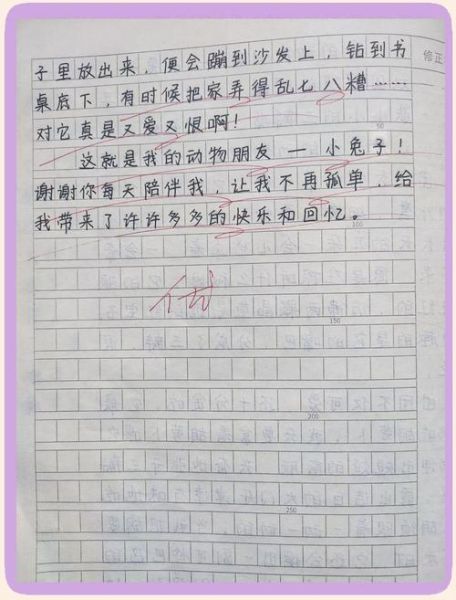 子里放出来，便会蹦到沙发上，钻到书
桌底下，有时候把家弄得乱七八糟……
对它真是又爱又恨啊！
这就是我的动物朋友 — 小兔子！
谢谢你每天陪伴我，让我不再孤单，给
我带来了许许多多的快乐和回忆。
优
修正
100
150
200
250